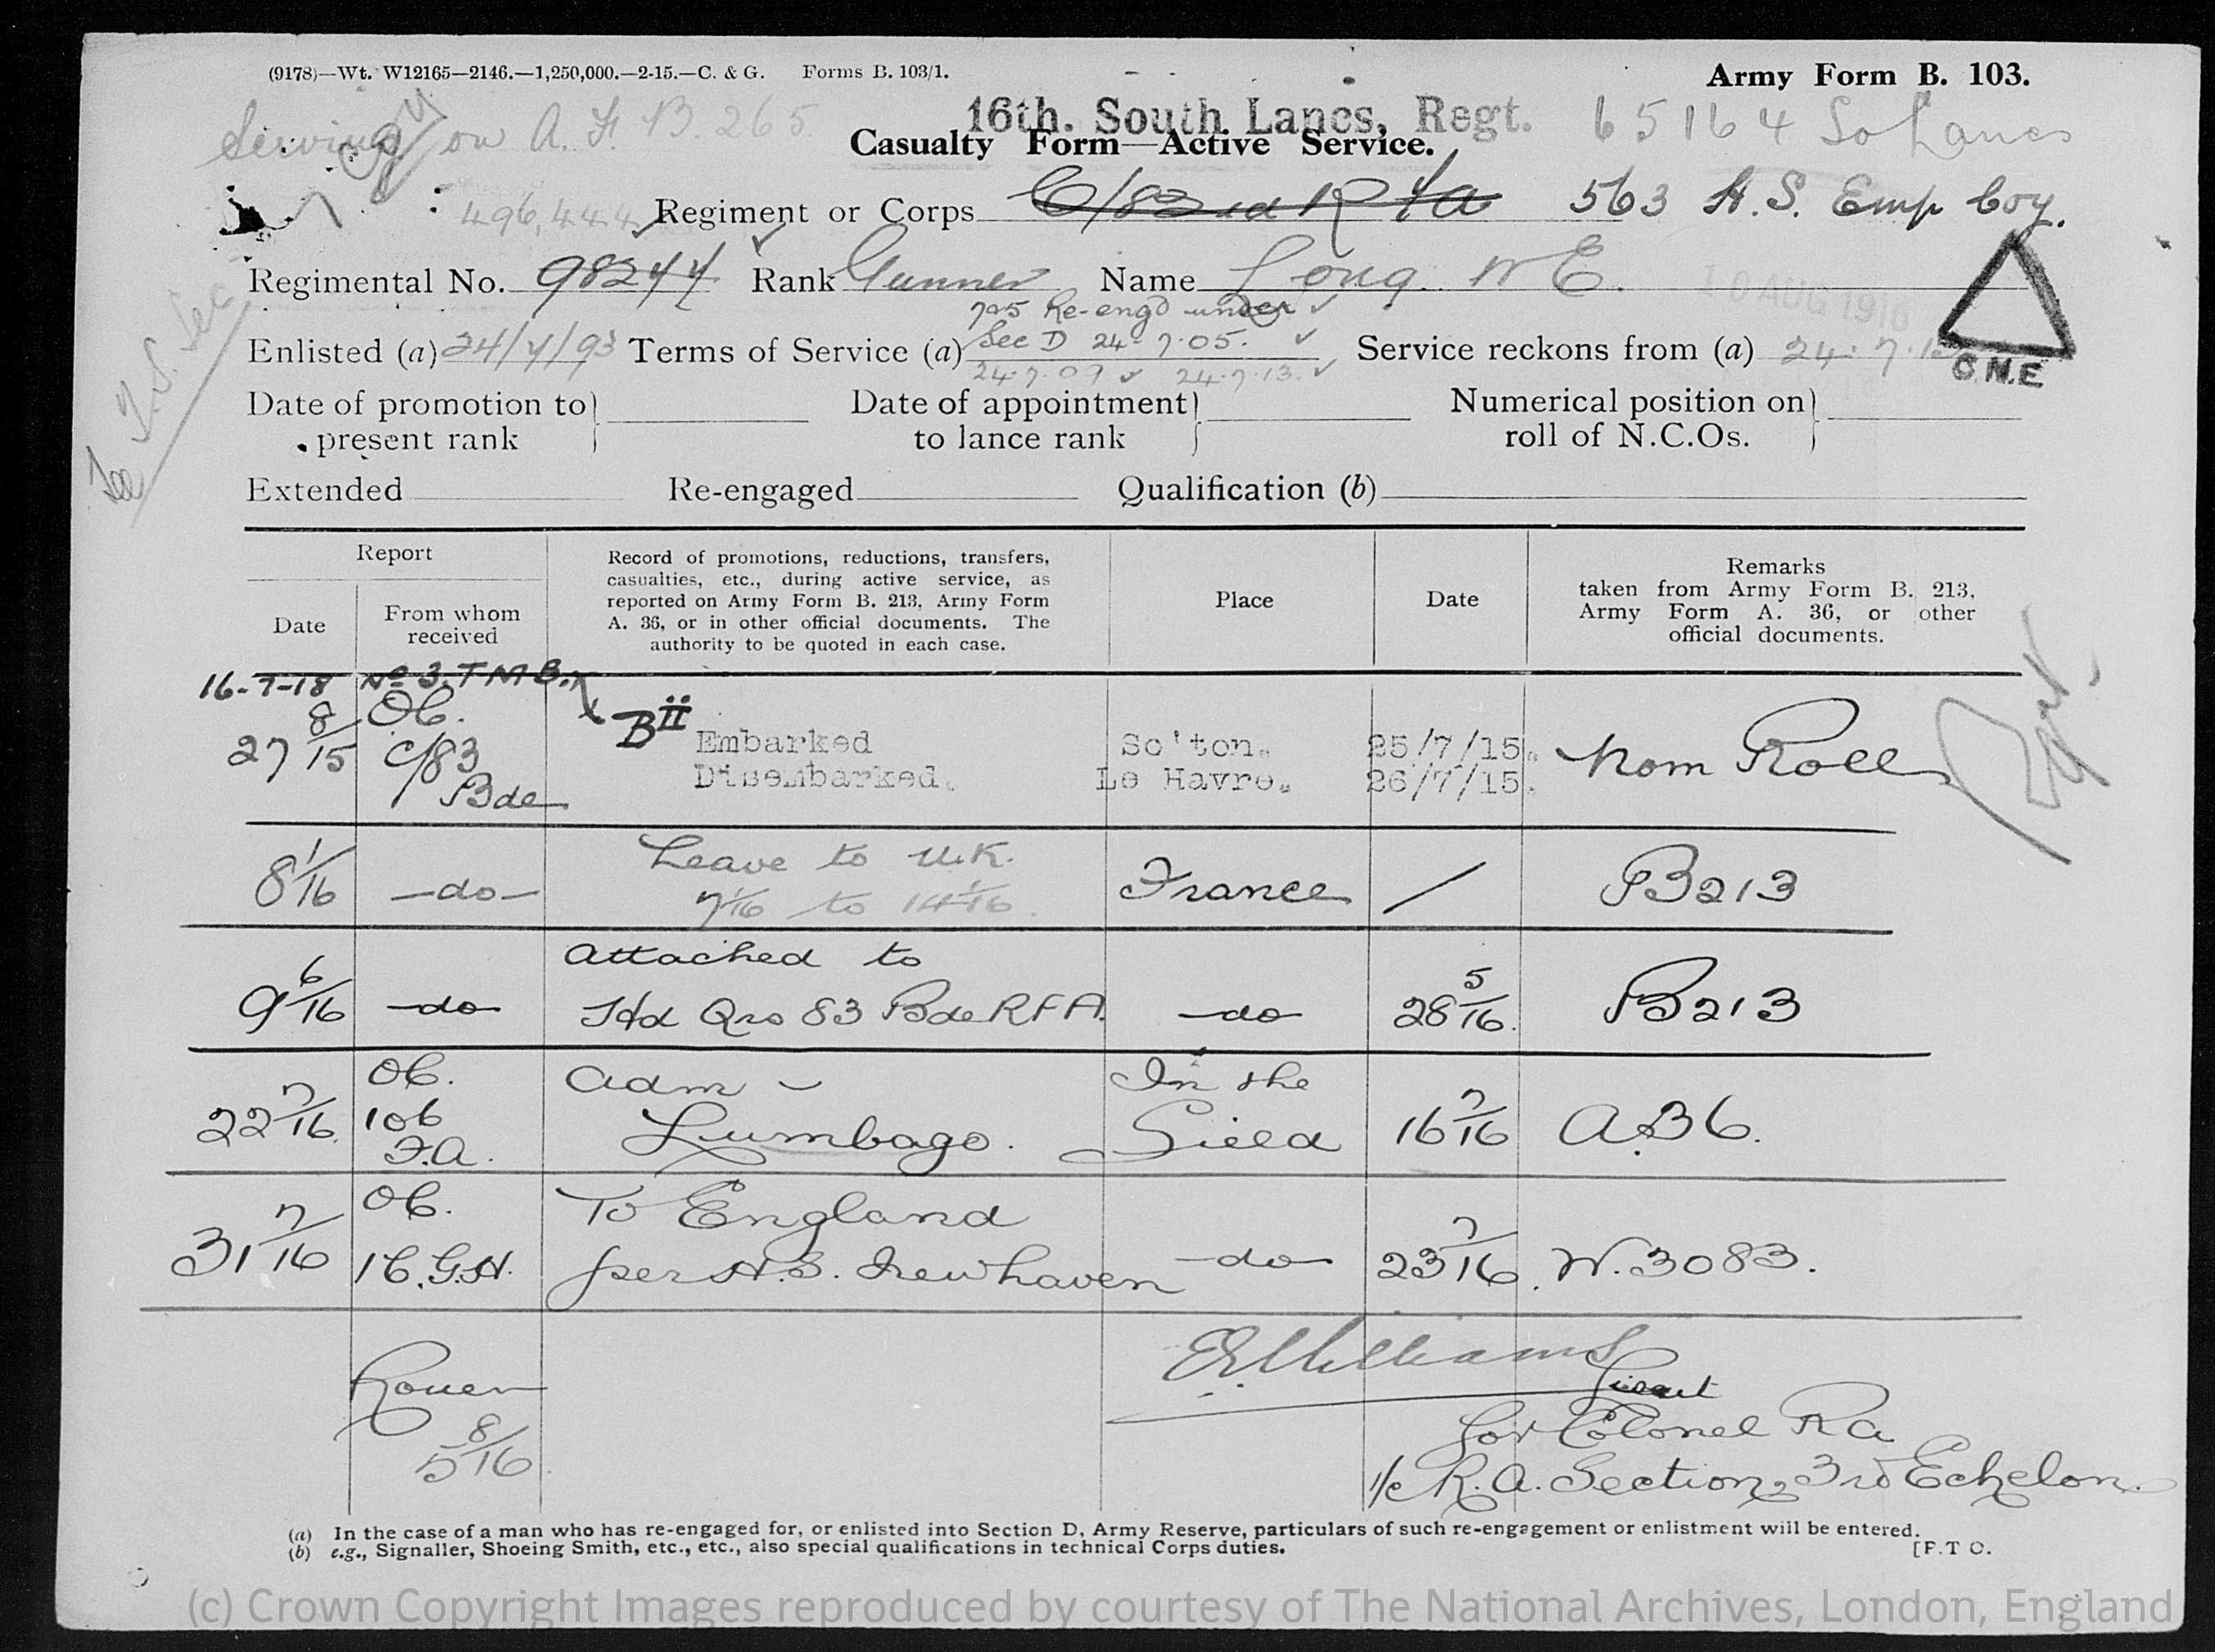 (9178)—Wt. W12165—2146.—1,250,000.—2-15.—C. & G. Forms B. 103/1.
Army Form B. 103.
Serving on A.F. B. 265.
16th. South Lancs, Regt.
65164 So Lancs
Casualty Form—Active Service.
496,444
Regiment or Corps C/83rd R F A 563 H.S. Emp Coy.
Regimental No. 98244 Rank Gunner Name Long. W E.
10 AUG 1916
Re-engd under
Enlisted (a) 24/7/93 Terms of Service (a) Sec D 24.7.05. Service reckons from (a) 24.7.
24.7.09 24.7.13.
C.M.E
See
Date of promotion to present rank
Date of appointment to lance rank
Numerical position on roll of N.C.Os.
Extended Re-engaged Qualification (b)
Report
Date
From whom received
Record of promotions, reductions, transfers,
casualties, etc., during active service, as
reported on Army Form B. 213, Army Form
A. 36, or in other official documents. The
authority to be quoted in each case.
Place
Date
Remarks
taken from Army Form B. 213,
Army Form A. 36, or other
official documents.
16-7-18 No 3. T M B. B II
27 8/15 OC. C/83 Bde Embarked So'ton. 25/7/15. Nom Roll
Disembarked. Le Havre. 26/7/15.
8 1/16 —do— Leave to U.K. France / B213
7 1/16 to 14 1/16.
9 6/16 —do— Attached to Hd Qrs 83 Bde RFA. —do— 28 5/16. B213
22 7/16. OC. 106 F.A. Adm — Lumbago. In the Field 16 7/16 A.36.
31 7/16 OC. 1C.G.H. To England per H.S. Newhaven —do— 23 7/16. W.3083.
Rouen
5 8/16.
E Williams
Lieut
for Colonel RA
i/c R.A. Section, 3rd Echelon.
(a) In the case of a man who has re-engaged for, or enlisted into Section D, Army Reserve, particulars of such re-engagement or enlistment will be entered.
(b) e.g., Signaller, Shoeing Smith, etc., etc., also special qualifications in technical Corps duties.
[P.T O.
(c) Crown Copyright Images reproduced by courtesy of The National Archives, London, England